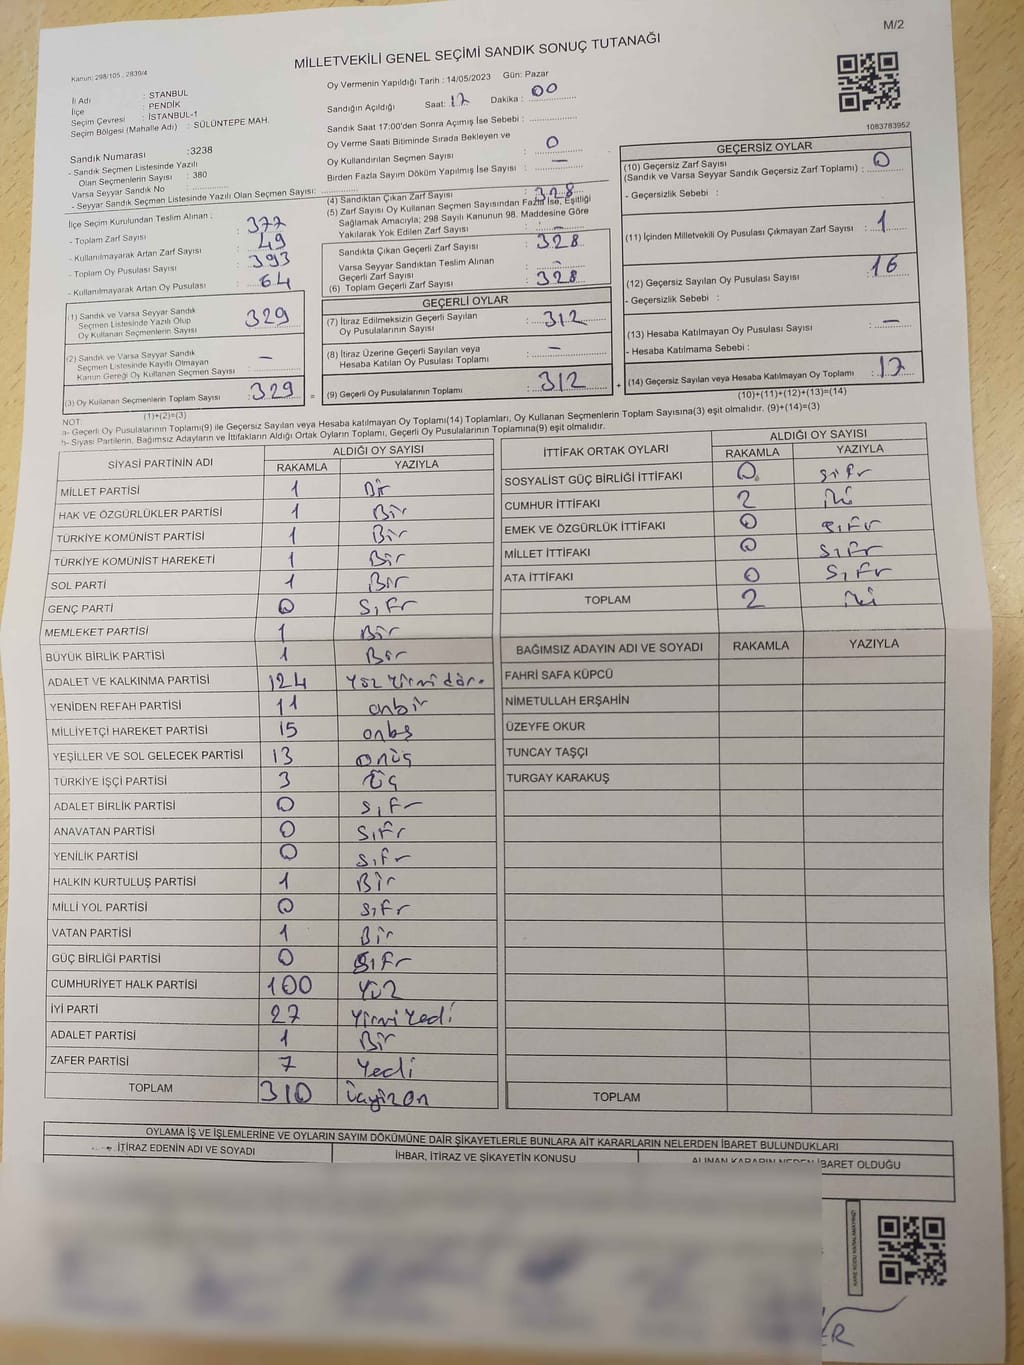 M/2
MİLLETVEKİLİ GENEL SEÇİMİ SANDIK SONUÇ TUTANAĞI
Kanun: 298/105 , 2839/4
İl Adı : STANBUL
İlçe : PENDİK
Seçim Çevresi : İSTANBUL-1
Seçim Bölgesi (Mahalle Adı) : SÜLÜNTEPE MAH.
Oy Vermenin Yapıldığı Tarih : 14/05/2023 Gün: Pazar
Sandığın Açıldığı Saat: 17 Dakika : 00
Sandık Saat 17:00'den Sonra Açımış İse Sebebi :
Oy Verme Saati Bitiminde Sırada Bekleyen ve
Oy Kullandırılan Seçmen Sayısı : 0
Birden Fazla Sayım Döküm Yapılmış İse Sayısı : —
1083783952
Sandık Numarası :3238
- Sandık Seçmen Listesinde Yazılı
Olan Seçmenlerin Sayısı : 380
Varsa Seyyar Sandık No :
- Seyyar Sandık Seçmen Listesinde Yazılı Olan Seçmen Sayısı:
İlçe Seçim Kurulundan Teslim Alınan :
- Toplam Zarf Sayısı : 377
- Kullanılmayarak Artan Zarf Sayısı : 49
- Toplam Oy Pusulası Sayısı : 393
- Kullanılmayarak Artan Oy Pusulası : 64
(1) Sandık ve Varsa Seyyar Sandık
Seçmen Listesinde Yazılı Olup
Oy Kullanan Seçmenlerin Sayısı : 329
(2) Sandık ve Varsa Seyyar Sandık
Seçmen Listesinde Kayıtlı Olmayan
Kanun Gereği Oy Kullanan Seçmen Sayısı : —
(3) Oy Kullanan Seçmenlerin Toplam Sayısı : 329
(1)+(2)=(3)
(4) Sandıktan Çıkan Zarf Sayısı : 328
(5) Zarf Sayısı Oy Kullanan Seçmen Sayısından Fazla İse, Eşitliği
Sağlamak Amacıyla; 298 Sayılı Kanunun 98. Maddesine Göre
Yakılarak Yok Edilen Zarf Sayısı : —
Sandıkta Çıkan Geçerli Zarf Sayısı : 328
Varsa Seyyar Sandıktan Teslim Alınan
Geçerli Zarf Sayısı : —
(6) Toplam Geçerli Zarf Sayısı : 328
GEÇERLİ OYLAR
(7) İtiraz Edilmeksizin Geçerli Sayılan
Oy Pusulalarının Sayısı : 312
(8) İtiraz Üzerine Geçerli Sayılan veya
Hesaba Katılan Oy Pusulası Toplamı : —
= (9) Geçerli Oy Pusulalarının Toplamı : 312
GEÇERSİZ OYLAR
(10) Geçersiz Zarf Sayısı
(Sandık ve Varsa Seyyar Sandık Geçersiz Zarf Toplamı) : 0
- Geçersizlik Sebebi :
(11) İçinden Milletvekili Oy Pusulası Çıkmayan Zarf Sayısı : 1
(12) Geçersiz Sayılan Oy Pusulası Sayısı : 16
- Geçersizlik Sebebi :
(13) Hesaba Katılmayan Oy Pusulası Sayısı : —
- Hesaba Katılmama Sebebi :
+ (14) Geçersiz Sayılan veya Hesaba Katılmayan Oy Toplamı : 17
(10)+(11)+(12)+(13)=(14)
NOT:
a- Geçerli Oy Pusulalarının Toplamı(9) ile Geçersiz Sayılan veya Hesaba katılmayan Oy Toplamı(14) Toplamları, Oy Kullanan Seçmenlerin Toplam Sayısına(3) eşit olmalıdır. (9)+(14)=(3)
b- Siyasi Partilerin, Bağımsız Adayların ve İttifakların Aldığı Ortak Oyların Toplamı, Geçerli Oy Pusulalarının Toplamına(9) eşit olmalıdır.
SİYASİ PARTİNİN ADI ALDIĞI OY SAYISI
RAKAMLA YAZIYLA
MİLLET PARTİSİ 1 Bir
HAK VE ÖZGÜRLÜKLER PARTİSİ 1 Bir
TÜRKİYE KOMÜNİST PARTİSİ 1 Bir
TÜRKİYE KOMÜNİST HAREKETİ 1 Bir
SOL PARTİ 1 Bir
GENÇ PARTİ 0 Sıfr
MEMLEKET PARTİSİ 1 Bir
BÜYÜK BİRLİK PARTİSİ 1 Bir
ADALET VE KALKINMA PARTİSİ 124 Yüz Yirmi dör.
YENİDEN REFAH PARTİSİ 11 onbir
MİLLİYETÇİ HAREKET PARTİSİ 15 onbş
YEŞİLLER VE SOL GELECEK PARTİSİ 13 onüç
TÜRKİYE İŞÇİ PARTİSİ 3 üç
ADALET BİRLİK PARTİSİ 0 Sıfr
ANAVATAN PARTİSİ 0 Sıfr
YENİLİK PARTİSİ 0 Sıfr
HALKIN KURTULUŞ PARTİSİ 1 Bir
MİLLİ YOL PARTİSİ 0 Sıfr
VATAN PARTİSİ 1 Bir
GÜÇ BİRLİĞİ PARTİSİ 0 Sıfr
CUMHURİYET HALK PARTİSİ 100 Yüz
İYİ PARTİ 27 Yirmi Yedi
ADALET PARTİSİ 1 Bir
ZAFER PARTİSİ 7 Yedi
TOPLAM 310 üçyüzon
İTTİFAK ORTAK OYLARI ALDIĞI OY SAYISI
RAKAMLA YAZIYLA
SOSYALİST GÜÇ BİRLİĞİ İTTİFAKI 0 Sıfr
CUMHUR İTTİFAKI 2 iki
EMEK VE ÖZGÜRLÜK İTTİFAKI 0 Sıfr
MİLLET İTTİFAKI 0 Sıfr
ATA İTTİFAKI 0 Sıfr
TOPLAM 2 iki
BAĞIMSIZ ADAYIN ADI VE SOYADI RAKAMLA YAZIYLA
FAHRİ SAFA KÜPCÜ
NİMETULLAH ERŞAHİN
ÜZEYFE OKUR
TUNCAY TAŞÇI
TURGAY KARAKUŞ
TOPLAM
OYLAMA İŞ VE İŞLEMLERİNE VE OYLARIN SAYIM DÖKÜMÜNE DAİR ŞİKAYETLERLE BUNLARA AİT KARARLARIN NELERDEN İBARET BULUNDUKLARI
İTİRAZ EDENİN ADI VE SOYADI İHBAR, İTİRAZ VE ŞİKAYETİN KONUSU ALINAN KARARIN NEDEN İBARET OLDUĞU